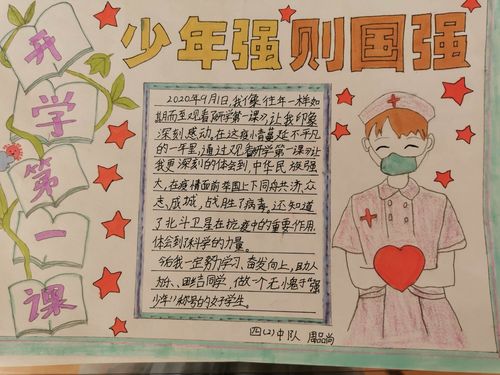 少年强则国强
开学第一课
2020年9月1日,我像往年一样如
期而至观看《开学第一课》,让我印象
深刻,感动,在这疫情蔓延不平凡
的一年里,通过观看《开学第一课》让
我更深刻的体会到,中华民族强
大,在疫情面前举国上下同舟共济,众
志成城,战胜了病毒。还知道
了北斗卫星在抗疫中的重要作用,
体会到了科学的力量。
今后我一定努力学习,奋发向上,助人
为乐、团结同学,做一个无愧于“强
少年”称号的好学生。
四(2)中队